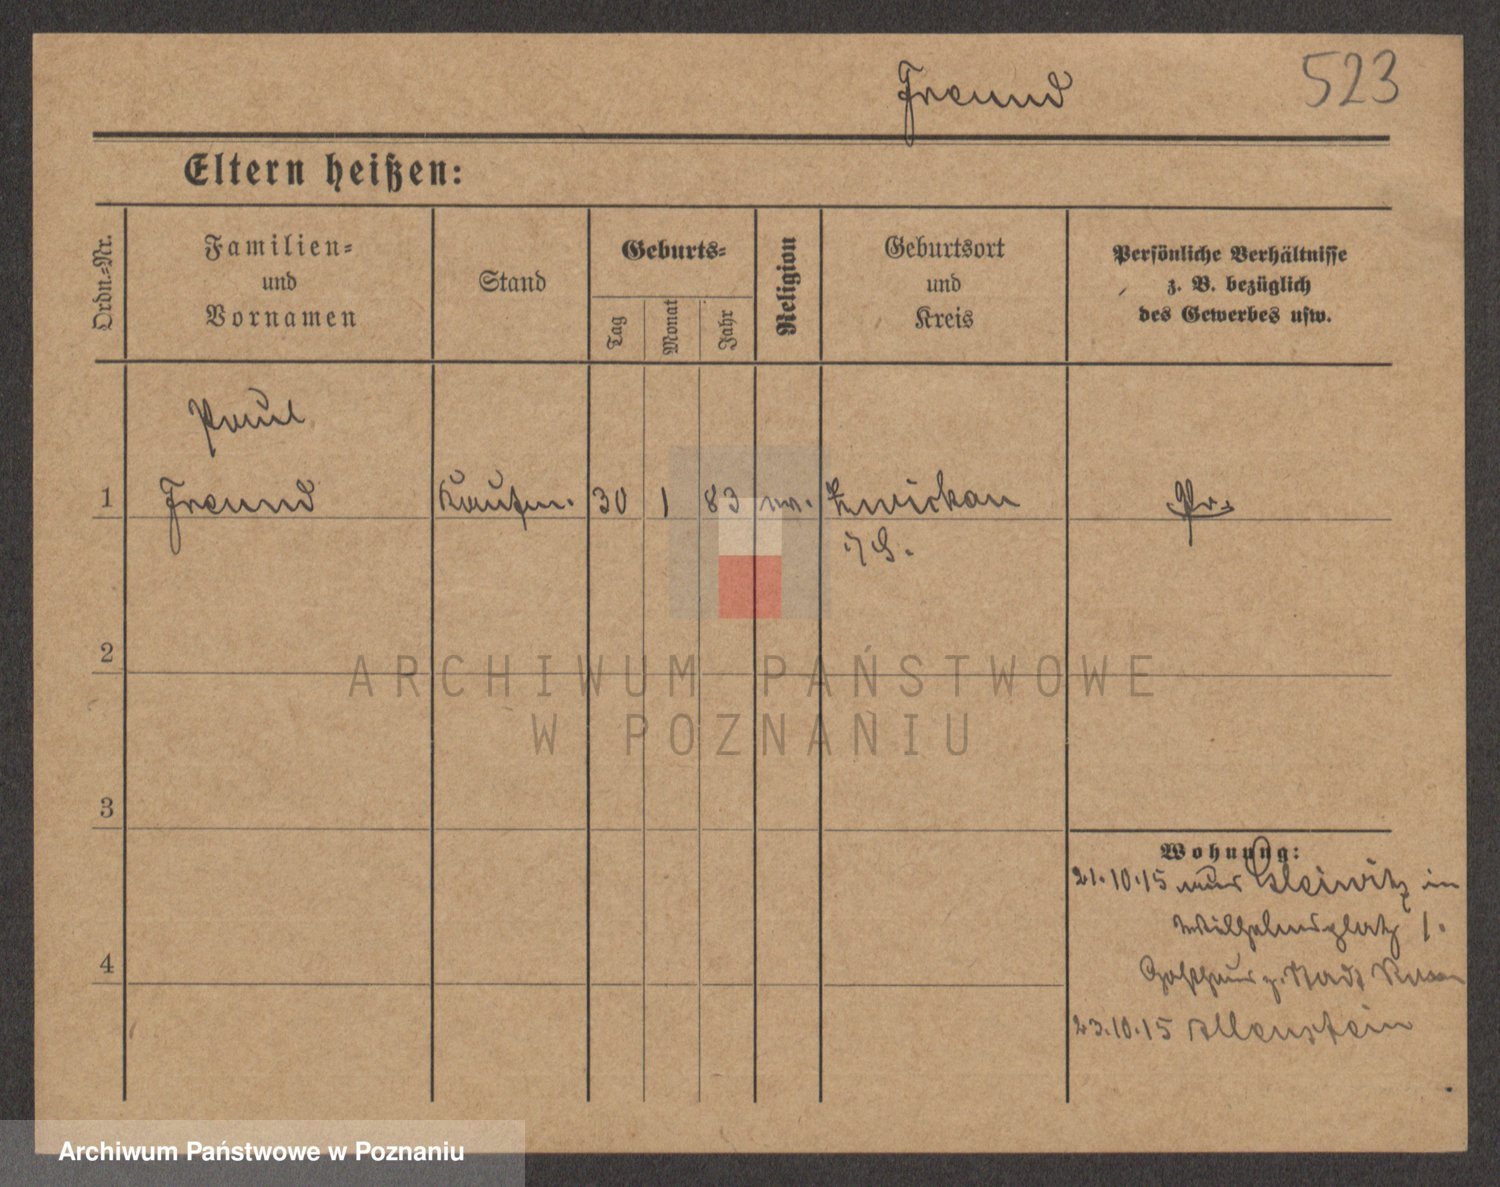 Freund
523
Eltern heißen:
Ordn.-Nr.
Familien-
und
Vornamen
Stand
Geburts-
Tag
Monat
Jahr
Religion
Geburtsort
und
Kreis
Persönliche Verhältnisse
z. B. bezüglich
des Gewerbes usw.
Paul
1 Freund Kaufm. 30 1 83 Zwickau Pr.
i/S.
2
ARCHIWUM PAŃSTWOWE
W POZNANIU
3
Wohnung:
21.10.15 aus Gleiwitz in
Wilhelmsplatz 1.
4
Gasthaus z. Stadt
23.10.15 Allenstein
Archiwum Państwowe w Poznaniu